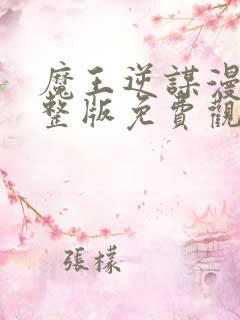 魔王逆謀漫
整版免費觀
張檬